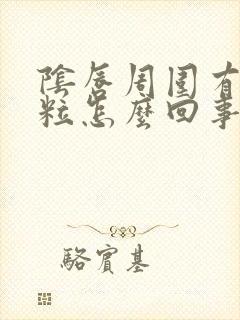 陰唇周圍有
粒怎麼回事
駱賓基